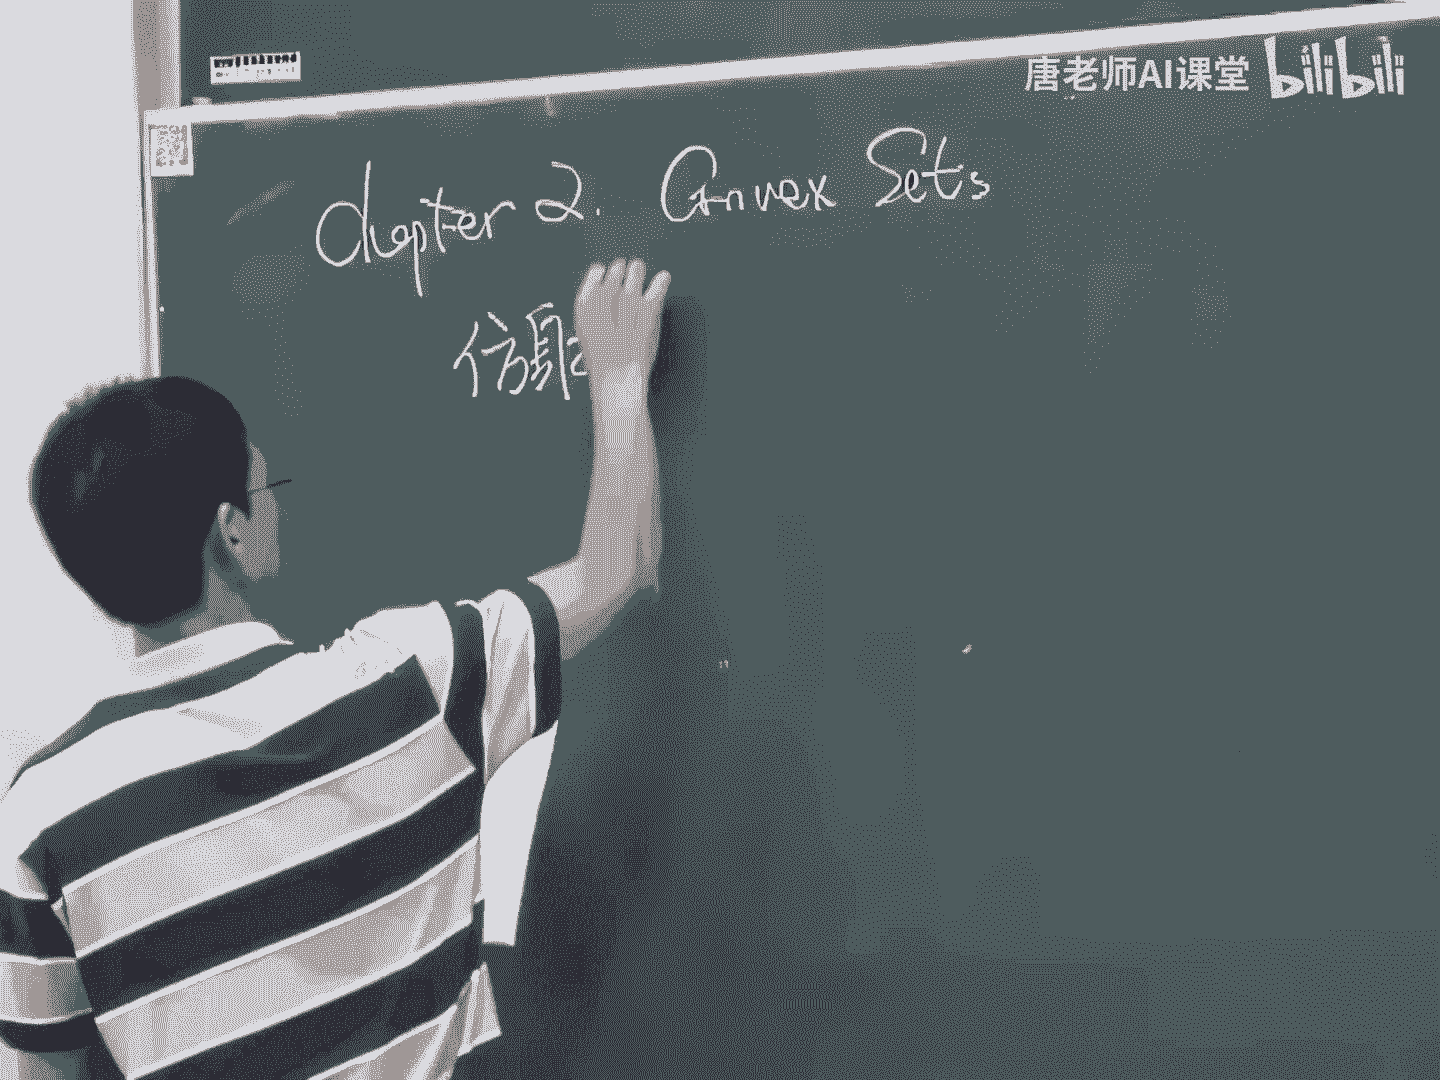 唐老师AI课堂 bilibili
Chapter 2. Convex Sets
仿射